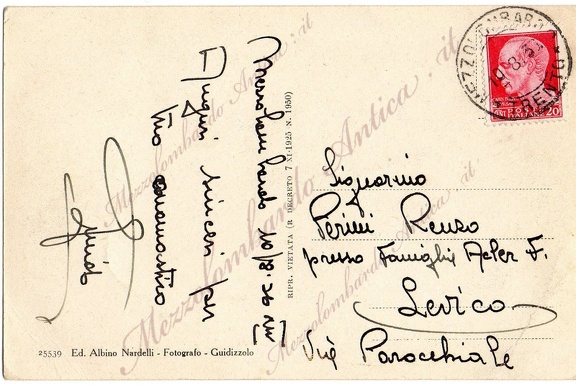 Mezzolombardo 10/8.
Auguri sinceri per
tuo onomastico
Guido
Signorino
Perini Renzo
presso Famiglia Adler F.
Levico
Via Parocchiale
RIPR. VIETATA (R DECRETO 7 XI-1925 N. 1950)
25539 Ed. Albino Nardelli - Fotografo - Guidizzolo
MEZZOLOMBARDO
TRENTO
POSTE ITALIANE 20
Mezzolombardo Antica.it
Mezzolombardo Antica.it
Mezzolombardo Antica.it